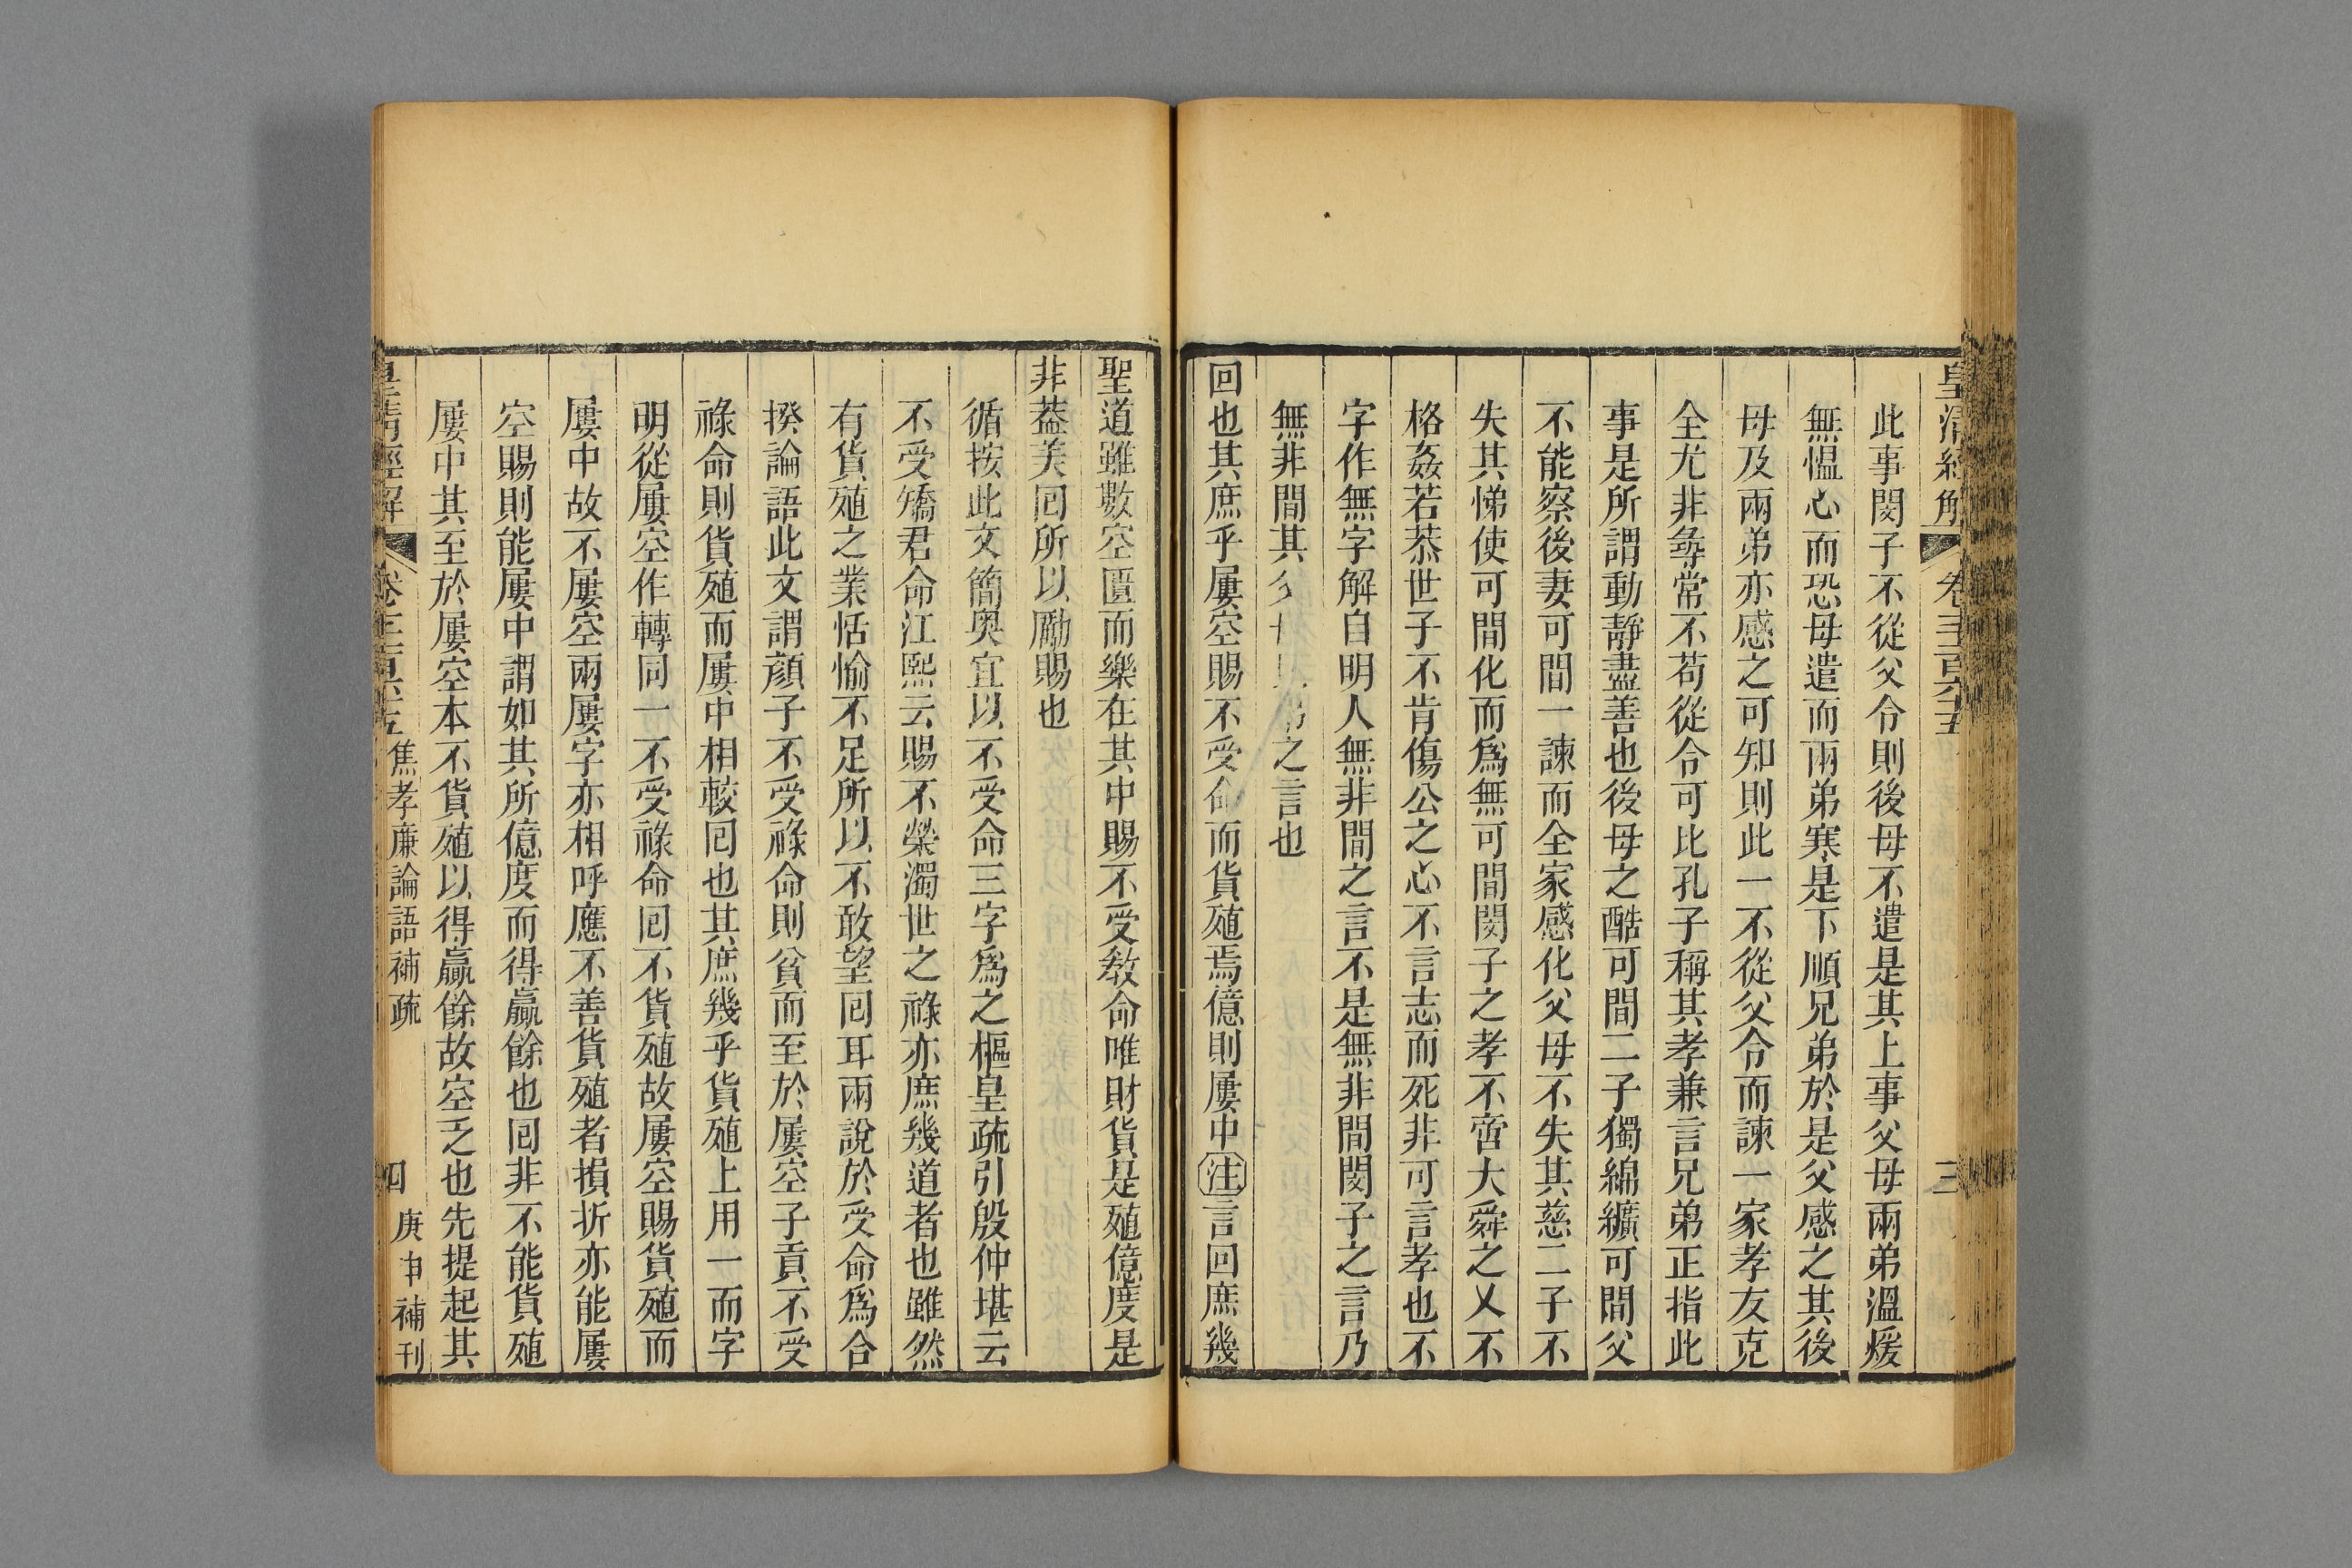 皇清經解 卷一千一百六十五 三
此事閔子不從父令則後母不遣是其上事父母兩弟溫煖
無慍心而恐母遣而兩弟寒是下順兄弟於是父感之其後
母及兩弟亦感之可知則此一不從父令而諫一家孝友克
全尤非尋常不苟從令可比孔子稱其孝兼言兄弟正指此
事是所謂動靜盡善也後母之酷可間二子獨綿纊可間父
不能察後妻可間一諫而全家感化父母不失其慈二子不
失其悌使可間化而爲無可間閔子之孝不啻大舜之乂不
格姦若恭世子不肯傷公之心不言志而死非可言孝也不
字作無字解自明人無非間之言不是無非間閔子之言乃
無非間其父之言也
回也其庶乎屢空賜不受命而貨殖焉億則屢中注言回庶幾
聖道雖數空匱而樂在其中賜不受敎命唯財貨是殖億度是
非葢美回所以勵賜也
循按此文簡奧宜以不受命三字爲之樞皇疏引殷仲堪云
不受矯君命江熙云賜不榮濁世之祿亦庶幾道者也雖然
有貨殖之業恬愉不足所以不敢望回耳兩說於受命爲合
揆論語此文謂顏子不受祿命則貧而至於屢空子貢不受
祿命則貨殖而屢中相較回也其庶幾乎貨殖上用一而字
明從屢空作轉同一不受祿命回不貨殖故屢空賜貨殖而
屢中故不屢空兩屢字亦相呼應不善貨殖者損折亦能屢
空賜則能屢中謂如其所億度而得贏餘也回非不能貨殖
屢中其至於屢空本不貨殖以得贏餘故空乏也先提起其
皇清經解 焦孝廉論語補疏 四 庚申補刊